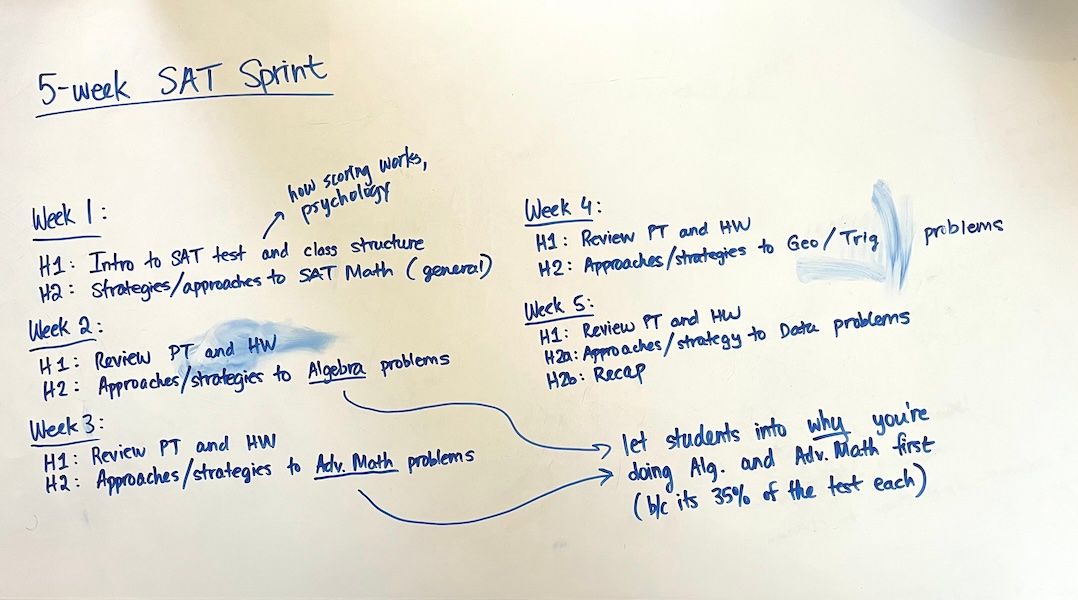 5-week SAT Sprint
how scoring works,
psychology
Week 1:
H1: Intro to SAT test and class structure
H2: Strategies/approaches to SAT Math (general)
Week 2:
H1: Review PT and HW
H2: Approaches/strategies to Algebra problems
Week 3:
H1: Review PT and HW
H2: Approaches/strategies to Adv. Math problems
Week 4:
H1: Review PT and HW
H2: Approaches/strategies to Geo/Trig problems
Week 5:
H1: Review PT and HW
H2a: Approaches/strategy to Data problems
H2b: Recap
let students into why you're
doing Alg. and Adv. Math first
(b/c its 35% of the test each)